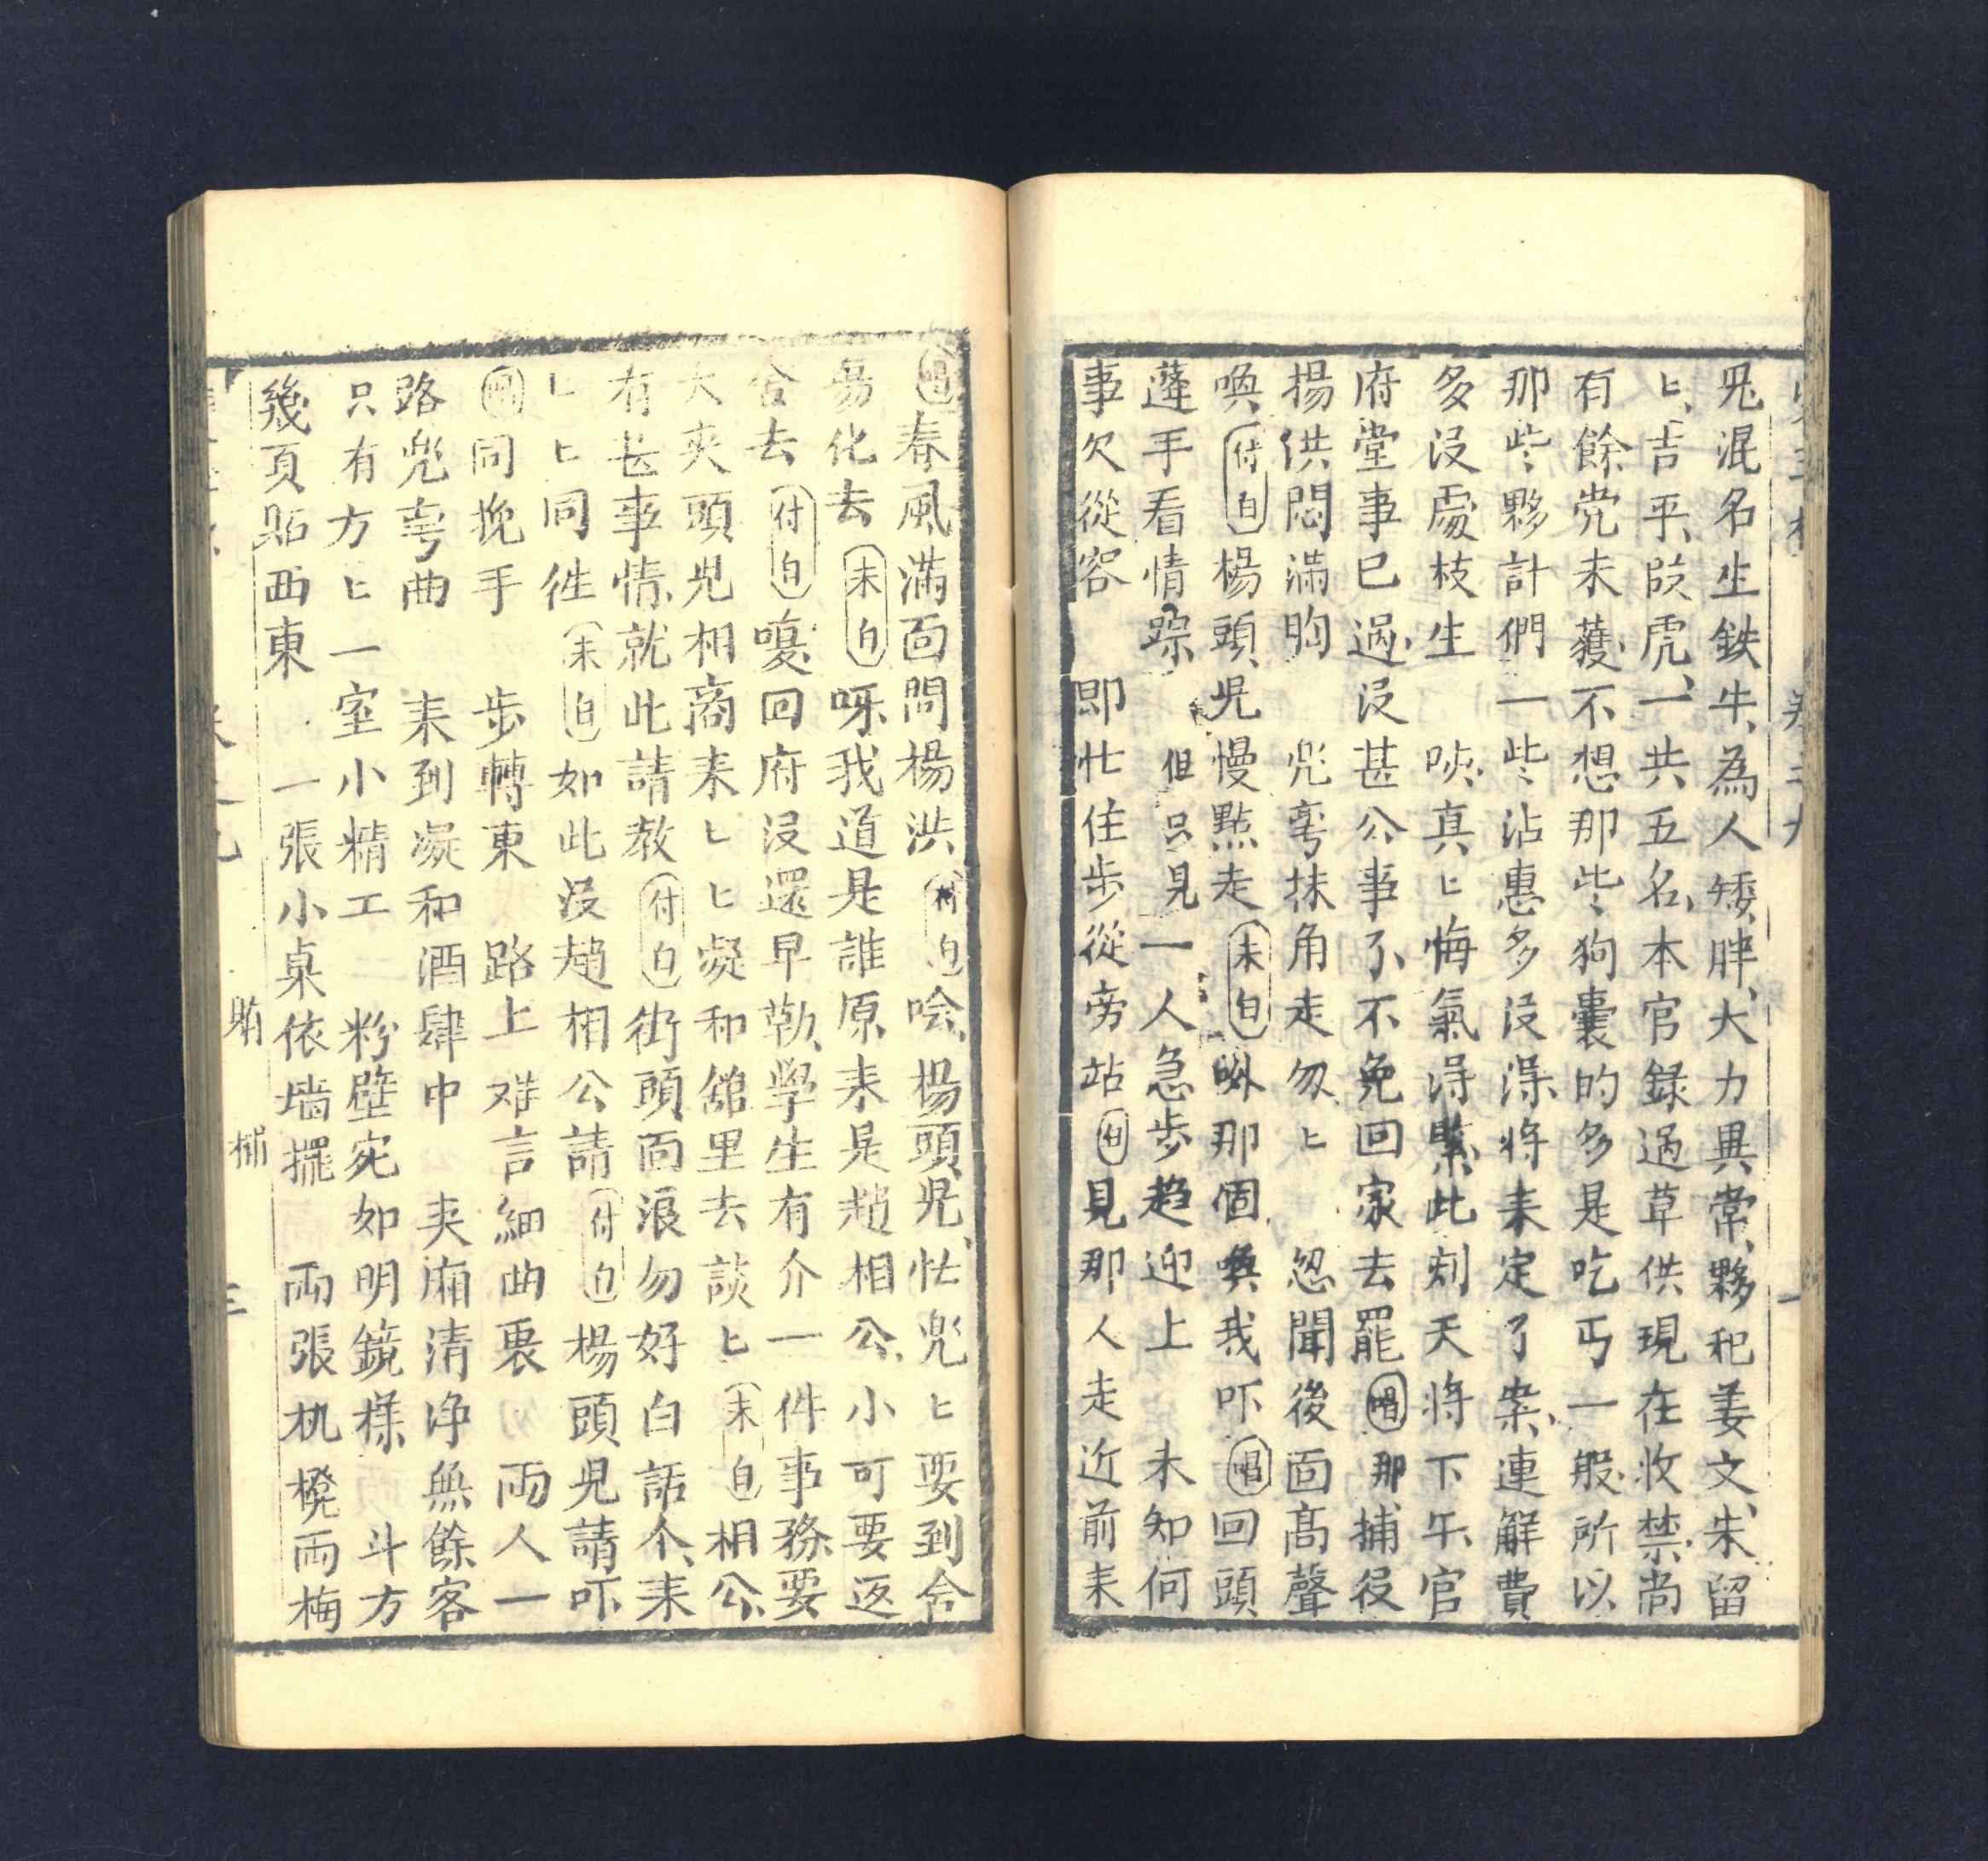 兕混名生鉄牛、為人矮胖、大力異常、夥祀姜文、朱留
ヒ、吉平、段虎、一共五名、本官録過草供現在收禁、尚
有餘党未獲、不想那些狗囊的多是吃丐一般所以
那些夥計們一些沾惠多没得将来定了案、連解費
多没處枝生　唉真ヒ悔氣得緊、此刻天将下午、官
府堂事已過、没甚公事了、不免回家去罷 唱 那捕役
揚供悶滿胸　兜彎抹角走匆ヒ　忽聞後面高聲
喚 付白 楊頭兒慢點走 末白 㖸那個喚我吓 唱 回頭
遮手看情踪　但只見一人急步趋迎上　未知何
事欠從容　即忙住步從旁站 付 見那人走近前来
唱 春風滿面問楊洪 付白 唅、楊頭兒、忙兜ヒ要到
昜化去 末白 呀我道是誰原来是趙相公、小可要返
舍去 付白 嗄回府没還早勒、學生有介一件事務要
大夾頭兒相商来ヒヒ凝和舘里去談ヒ 末白 相公、
有甚事情、就此請教 付白 街頭面浪勿好白話个、来
ヒヒ同徃 末白 如此没趙相公請 付白 楊頭兒請吓
唱 同挽手　步轉東　路上难言細曲衷　兩人一
路兜弯曲　来到凝和酒肆中　夹廂清净無餘客
只有方ヒ一室小精工　粉壁宛如明鏡様　斗方
幾頁貼西東　一張小桌依墻擺　兩張机櫈両梅
貼　捕　三